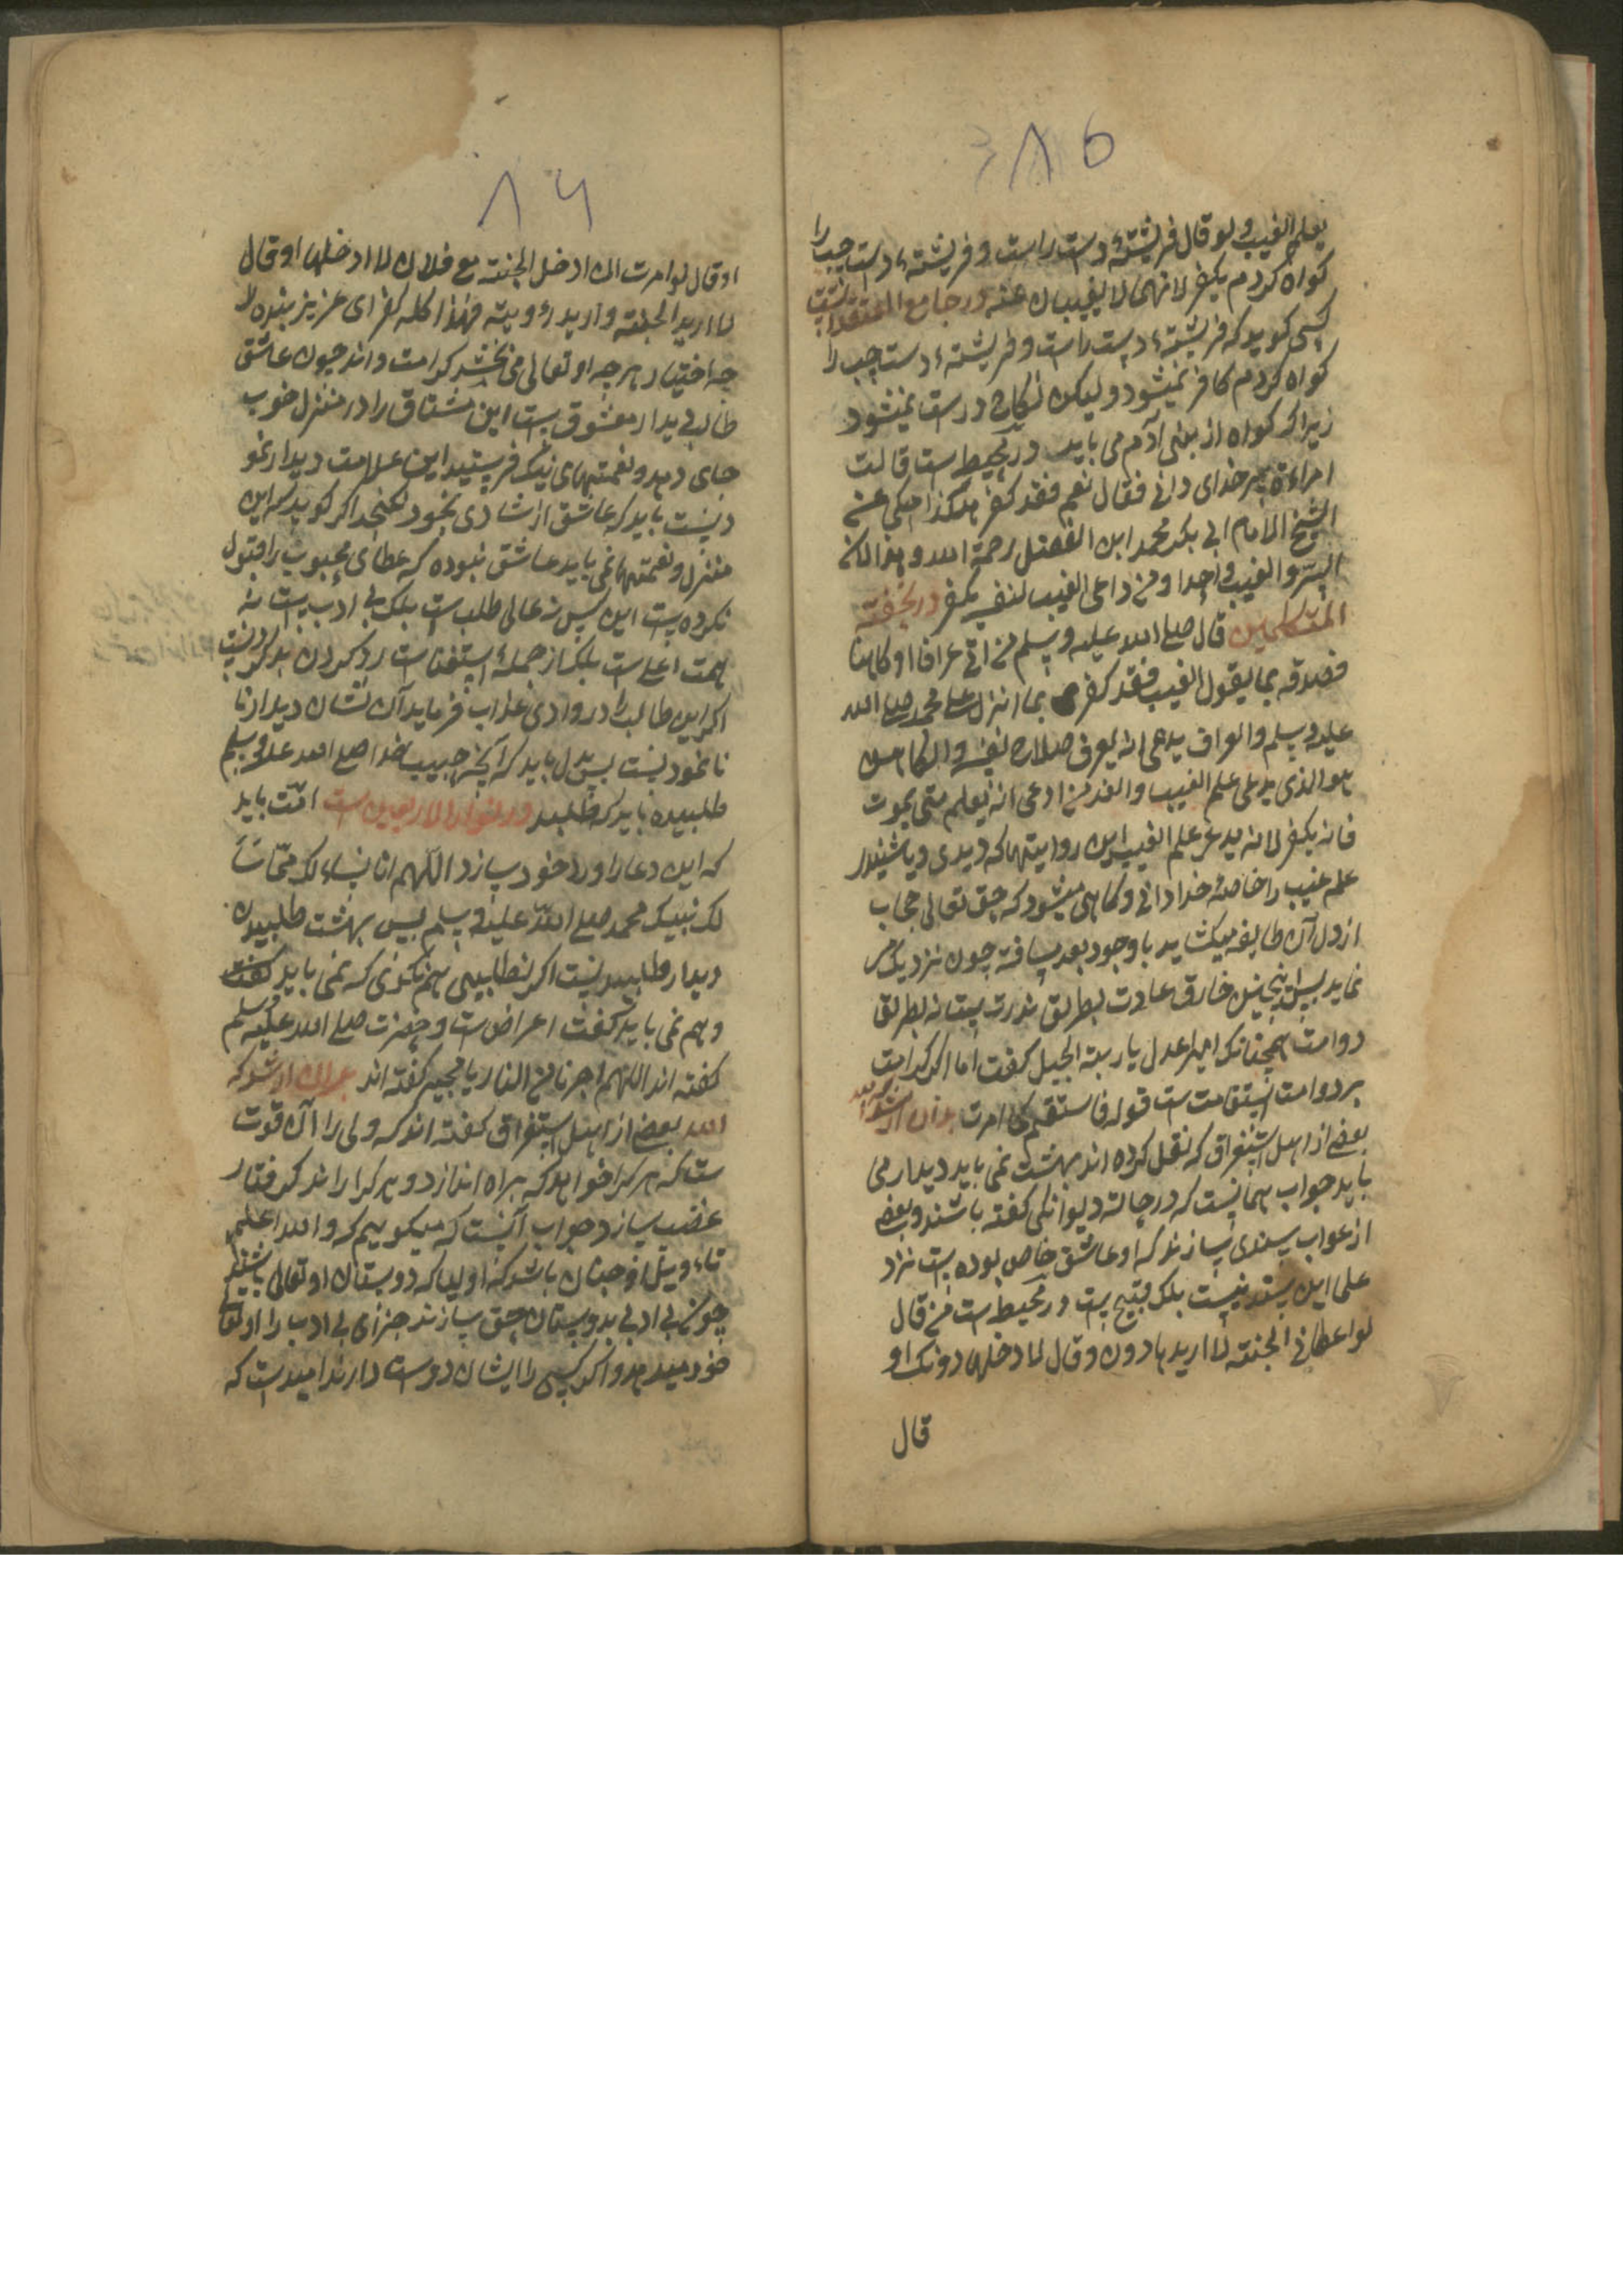 ۸۵
یعلم الغیب ولو قال فریشتهٔ دست راست و فریشتهٔ دست چپ را
کواه کردم یکفر لانهما لا یغیبان عنه در جامع المتفقداتست
کسی کوید که فریشتهٔ دست راست و فریشتهٔ دست چپ را
کواه کردم کافر نمیشود ولیکن نکاح درست نمیشود
زیرا که کواه از بنی آدم می باید در محیط ست قالت
امراءة سر خدای دانی فقال نعم فقد کفر هکذا حکی عن
الشیخ الامام ابی بکر محمد ابن الفضل رحمة الله و هذا لان
السّر و الغیب واحدا و من داعی الغیب لنفسه یکفر در تحفة
المتکلمین قال صلی الله علیه وسلم من اتی عرافا او کاهنا
فصدقه بما یقول الغیب فقد کفر بما انزل علی محمد صلی الله
علیه وسلم والعراف یدعی انه یعرف والکاهن
هو الذی یدعی علم الغیب و من ادعی انه یعلم متی یموت
فانه یکفر لانه یدعی علم الغیب این روایتها که دیدی و یا شنیدی
علم غیب را خاصهٔ خدا دانی و کاهی میشود که حق تعالی حجاب
از دل آن طایفه میکشاید با وجود بعد مسافة چون نزدیک
نماید پس اینچنین خارق عادت بطریق ندرت ست نه بطریق
دوامت همچنانکه امیر اعدل یا ربیة الجبل کفت اما اکر کرامت
بر دوامت استقامت ست قوله فاستقم کما امرت بدان ارشدک الله
بعضی از اهل استغراق که نقل کرده اند بهشت نمی باید دیدار می
باید جواب همانست که در حالة دیوانکی کفته باشند و بعضی
از عواب سندی سازند که او عاشق خاص بوده ست نزاد
علی این سند نیست بلک قبیح ست در محیط ست من قال
لو اعطانی الجنته لا اریدها دون و قال لا ادخلها دونک او
قال
۸۶
او قال لو امرت ان ادخل الجنته مع فلان لا ادخلها او قال
لا ارید الجنته و ارید رؤویته فهذا کله کفر ای عزیز بنده را
چه اختیار هرچه او تعالی می بخشد کرامت داند چون عاشق
طالب دیدار معشوق ست این مشتاق را در منزل خوب
جای دهد و نعمتهای نیک فرستید این علامت دیدار نمو
دنست باید که عاشق از شادی بخود نکنجد اکر کوید که این
منزل و نعمتها نمی باید عاشق نبوده که عطای محبوب را قبول
نکرده ست این کس نه عالی طلب ست بلک بی ادبست نه
همت اعلی ست بلک از جملهٔ استغناست رد کردن
اکر این طالب را در وادی عذاب فرماید آن نشان دیدار نا
نا نمودنست پس دل باید که آنچه حبیب خدا صلی الله علیه وسلم
طلبیده باید که طلبد در انوار الاربعین ست امّت باید
که این دعا را ورد خود سازد اللّهم انا نساءلک ممّا سَاَ
لک نبیک محمد صلی اللّه علیه وسلم پس بهشت طلبیدن
دیدار طلبیدنست اکر نطلبیی هم نکوئی که نمی باید
و هم نمی باید کفت اعراض ست و حضرت صلی الله علیه وسلم
کفته اند اللهم اجرنا من النار یا مجیر کفته اند بدان ارشدک
الله بعضی از اهل استغراق کفته اند که ولی را آن قوت
ست که هر کرا خواهد که براه اندازد و هر کرا راند کرفتار
غضب سازد جواب آنست که میکوییم که والله اعلم
تاءویل او چنان باشد که اولیا که دوستان او تعالی باشند
چون بی ادبی بدوستان حق سازند جزای بی ادب را او تعالی
خود میدهد و اکر کسی را ایشان دوست دارند امید ست که